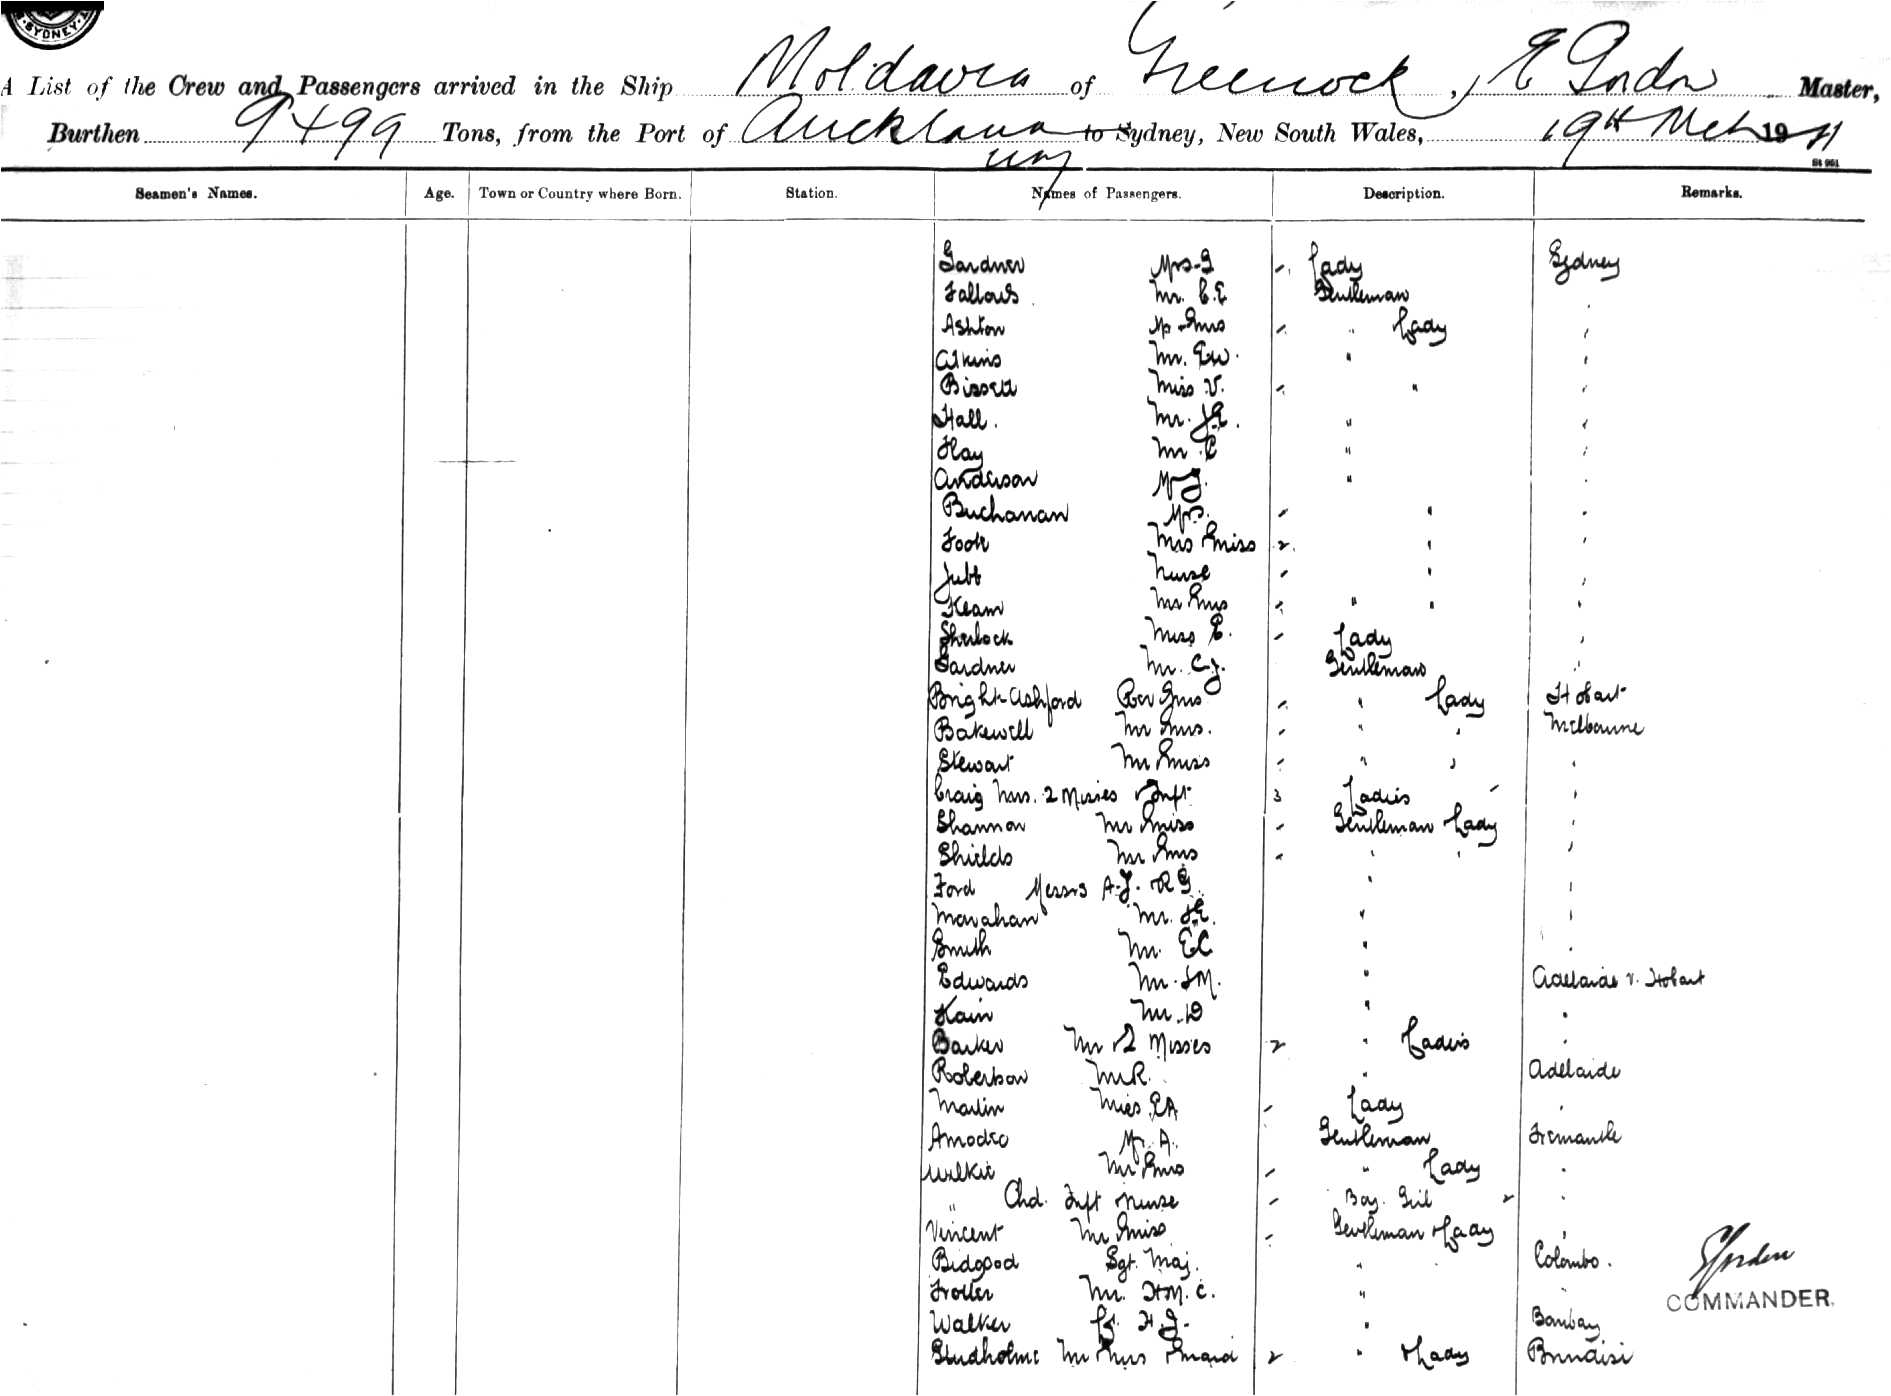 SYDNEY
A List of the Crew and Passengers arrived in the Ship Moldavia of Greenock, E Gordon Master,
Burthen 9499 Tons, from the Port of Auckland to Sydney, New South Wales, 19th Mch 1911
Seamen's Names. Age. Town or Country where Born. Station. Names of Passengers. Description. Remarks.
Gardner Mrs G Lady Sydney
Fallows Mr. C.E Gentleman
Ashton Mr & Mrs " Lady
Atkins Mr. E.W. "
Bissett Miss V. "
Hall. Mr. J.E. "
Hay Mr C "
Anderson Mr J. "
Buchanan Mrs. "
Foote Mrs & Miss 2 "
Jubb Nurse "
Keam Mr & Mrs " "
Sherlock Miss E. Lady
Gardner Mr. C.J. Gentleman
Bright-Ashford Rev & Mrs " Lady Hobart
Bakewell Mr & Mrs. " " Melbourne
Stewart Mr & Miss " "
Craig Mrs. 2 Misses & Inft 3 Ladies
Shannon Mr & Miss Gentleman & Lady
Shields Mr & Mrs " "
Ford Messrs A.J. & R G "
Monahan Mr. J.E. "
Smith Mr. E C "
Edwards Mr. J M. " Adelaide v. Hobart
Kain Mr. D "
Barker Mr & 2 Misses 2 " Ladies
Robertson Mr R. " Adelaide
Martin Miss E A Lady
Amodeo Mr. A. Gentleman Fremantle
Wilkie Mr & Mrs " Lady
" Chd. Inft & Nurse Boy. Girl
Vincent Mr & Miss Gentleman & Lady
Bidgood Sgt. Maj. " Colombo.
Trotter Mr. H M. C. "
COMMANDER.
Walker H. J. " Bombay
Studholme Mr & Mrs & maid 2 " & Lady Brindisi